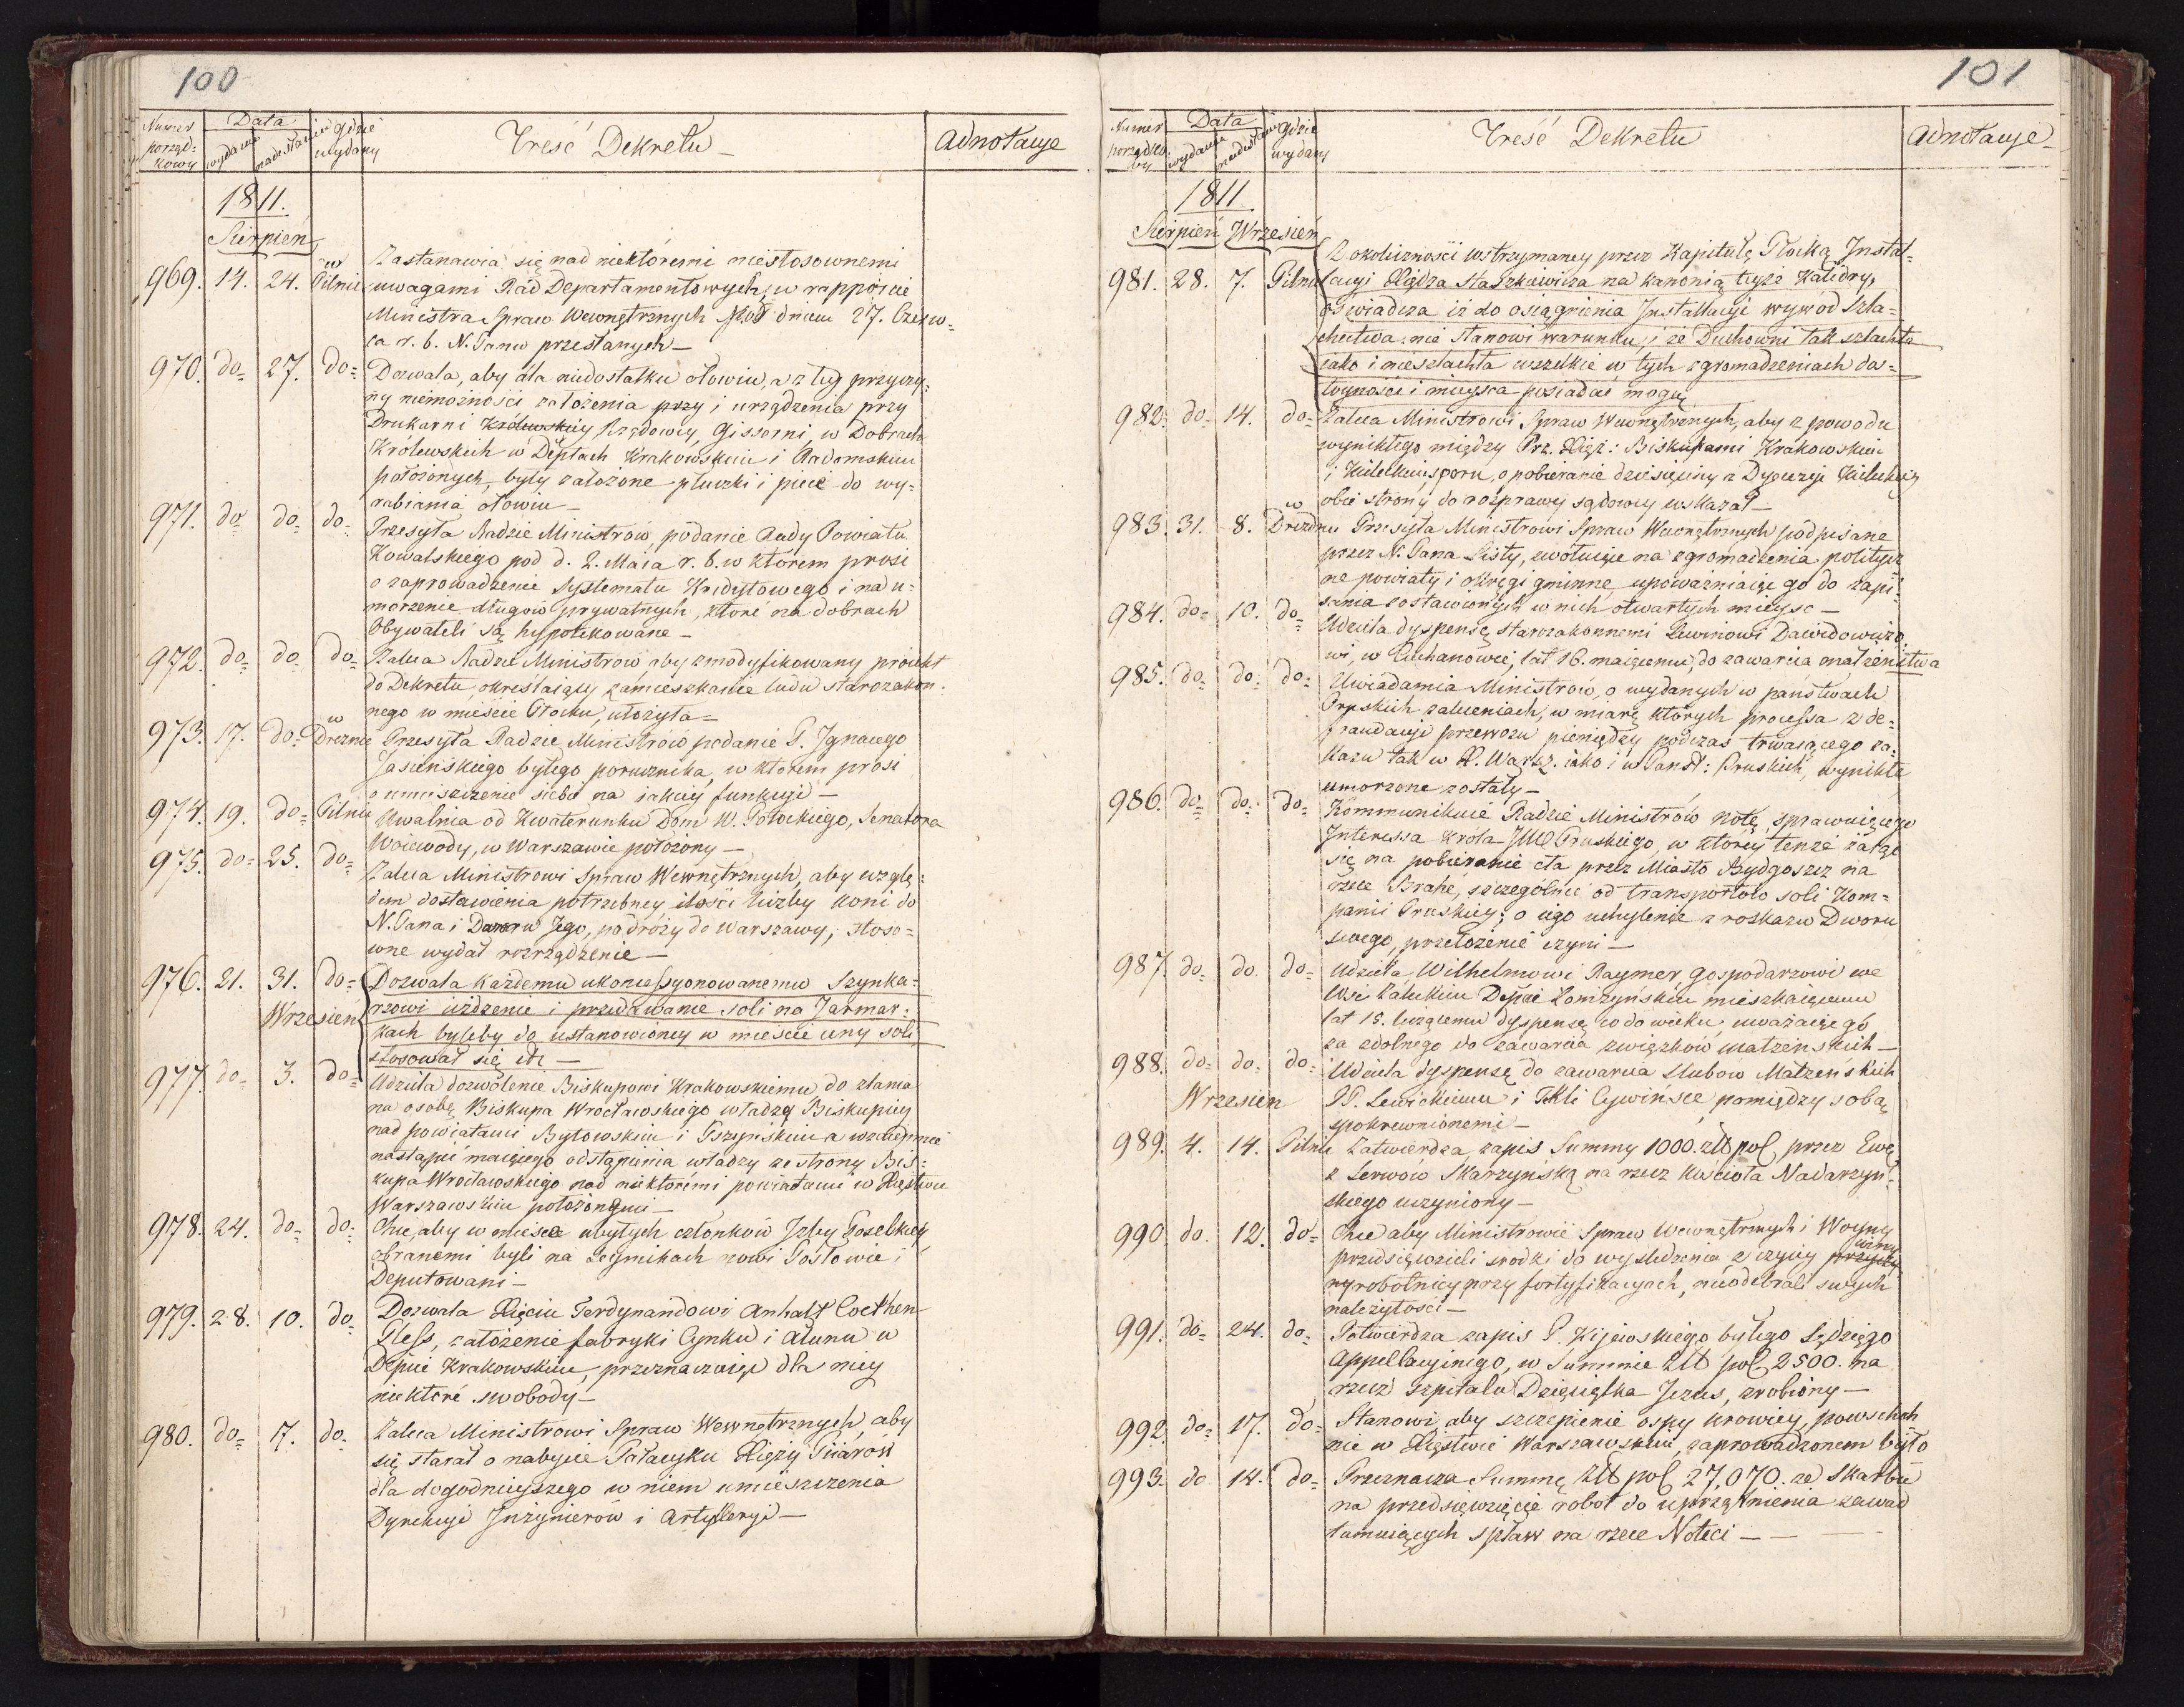 100
Numer porząd-kowy
Data
wydania
nadesłania
gdzie wydany
Treść Dekretu
Adnotacye
1811.
Sierpień
969. 14. 24. w Pilnic Zastanawia się nad niektóremi niestosownemi
uwagami Rad Departamentowych, w rapporcie
Ministra Spraw Wewnętrznych pod dniem 27. Czerw-
ca r. b. N. Panu przesłanych —
970. do 27. do Dozwala, aby dla niedostatku ołowiu, a z tey przyczy-
ny niemożności założenia przy i urządzenia przy
Drukarni Królewskiey Rządowey, Gisserni, w Dobrach
Królewskich w Deptach Krakowskim i Radomskim
położonych, były założone płuczki i piece do wy-
rabiania ołowiu —
971. do do do Przesyła Radzie Ministrów, podanie Rady Powiatu
Kowalskiego pod d. 2. Maia r. b. w którem prosi
o zaprowadzenie Systematu Kredytowego i na u-
morzenie długów prywatnych, które na dobrach
Obywateli są hypotekowane —
972. do do do Zaleca Radzie Ministrów aby zmodyfikowany proiekt
do Dekretu, określaiący zamieszkanie ludu starozakon-
nego w mieście Płocku, ułożyła —
973. 17. do w Dreznie Przesyła Radzie Ministrów podanie P. Ignacego
Jasieńskiego byłego porucznika, w którem prosi
o umieszczenie siebie na iakiey funkcyi —
974. 19. do Pilnic Uwalnia od Kwaterunku Dom W. Potockiego, Senatora
Woiewody, w Warszawie położony —
975. do 25. do Zaleca Ministrowi Spraw Wewnętrznych, aby wzglę-
dem dostawienia potrzebney ilości liczby koni do
N. Pana i Dworu Jego, podróży do Warszawy, stoso-
wne wydał rozrządzenie —
976. 21. 31. do Dozwala każdemu ukoncessyonowanemu Szynka-
Wrzesień rzowi ieżdzenie i przedawanie soli na Jarmar-
kach byleby do ustanowioney w mieście ceny soli
stosował się etc —
977. do 3. do Udziela dozwolenie Biskupowi Krakowskiemu do zlania
na osobę Biskupa Wrocławskiego władzę Biskupiey
nad powiatami Bytowskim i Pszyńskim a wzaiemnie
nastąpić maiącego odstąpienia władzy ze strony Bis-
kupa Wrocławskiego nad niektóremi powiatami w Xięstwie
Warszawskim położonemi —
978. 24. do do Chce, aby w mieście ubytych członków Izby Poselskiey
obranemi byli na Seymikach nowi Posłowie i
Deputowani —
979. 28. 10. do Dozwala Xięciu Ferdynandowi Anhalt Coethen
Pless, założenie fabryki Cynku i Ałunu w
Depcie Krakowskim, przeznaczaiąc dla niey
niektóre swobody —
980. do 17. do Zaleca Ministrowi Spraw Wewnętrznych, aby
się starał o nabycie Pałacyku Xięży Piiarów
dla dogodnieyszego w niem umieszczenia
Dyrekcyi Inżynierów i Artylleryi —
101
Numer porządko-wy
Data
wydania
nadesłania
gdzie wydany
Treść Dekretu
Adnotacye
1811
Sierpień Wrzesień
981. 28. 7. Pilnic Z okoliczności wstrzymaney przez Kapitułę Płocką Instal-
lacyi Xiędza Staszkiewicza na kanonią teyże Katedry,
oświadcza iż do osiągnienia Installacyi wywód Szla-
chectwa nie stanowi warunku, i że Duchowni tak szlachta
iako i nieszlachta wszelkie w tych zgromadzeniach dos-
toyności i mieysca posiadać mogą
982. do 14. do Zaleca Ministrowi Spraw Wewnętrznych, aby z powodu
wynikłego między Prz. Xięż: Biskupami Krakowskim
i Kieleckim sporu, o pobieranie dziesięciny z Dyecezyi Kieleckiey
obie strony do rozprawy sądowey wskazał —
983. 31. 8. w Dreźnie Przesyła Ministrowi Spraw Wewnętrznych podpisane
przez N. Pana Listy, zwołuiące na zgromadzenia politycz
ne powiaty i okręgi gminne, upoważniaiąc go do zapi-
sania zostawionych w nich otwartych mieysc —
984. do 10. do Udziela dyspensę starozakonnemi Lewinowi Dawidowiczo-
wi, w Ciechanowie, lat 16. maiącemu, do zawarcia małżeństwa
985. do do do Uwiadamia Ministrów, o wydanych w państwach
Pruskich zaleceniach, w miarę których processa z de-
fraudacyi przewozu pieniędzy podczas trwaiącego za-
kazu tak w X. Warsz. iako i w Państ: Pruskich, wynikłe
umorzone zostały —
986. do do do Kommunikuie Radzie Ministrów notę, sprawuiącego
Interessa Króla JMC Pruskiego, w którey tenże żali
się na pobieranie cła przez Miasto Bydgoszcz na
rzece Brahe, szczególniej od transportow soli Kom-
panii Pruskiey; o iego uchylenie z roskazu Dworu
swego, przełożenie czyni —
987. do do do Udziela Wilhelmowi Raymer gospodarzowi we
Wsi Załuskim Depcie Łomżyńskim mieszkaiącemu
lat 15. liczącemu dyspensę co do wieku, uważaiąc go
za zdolnego do zawarcia związków małżeńskich —
988. do do do Udziela dyspensę do zawarcia Ślubow Małżeńskich
Wrzesień PP. Lewickiemu i Tekli Cywińsce, pomiędzy sobą
spokrewnionemi —
989. 4. 14. Pilnic Zatwierdza zapis Summy 1000. złł pol przez Ewę
z Lerwow Skarzyńską na rzecz Kościoła Nadarzyń-
skiego uczyniony —
990. do 12. do Chce aby Ministrowie Spraw Wewnętrznych i Woyny
przedsięwzieli srodki do wyśledzenia z czyiey przyczy winy
ny robotnicy przy fortyfikacyach, nieodebrali swych
należytości —
991. do 24. do Potwierdza zapis P. Kijewskiego byłego Sędziego
Appellacyinego, w Summie złł pol 2500. na
rzecz szpitalu Dzieciątka Jezus, zrobiony —
992. do 17. do Stanowi, aby szczepienie ospy krowiey, powszech
nie w Xięstwie Warszawskim, zaprowadzonem było
993. do 14. do Przeznacza Summę złł pol 27,070. ze Skarbu
na przedsięwzięcie robot do uprzątnienia zawad
tamuiących spław na rzece Noteci —